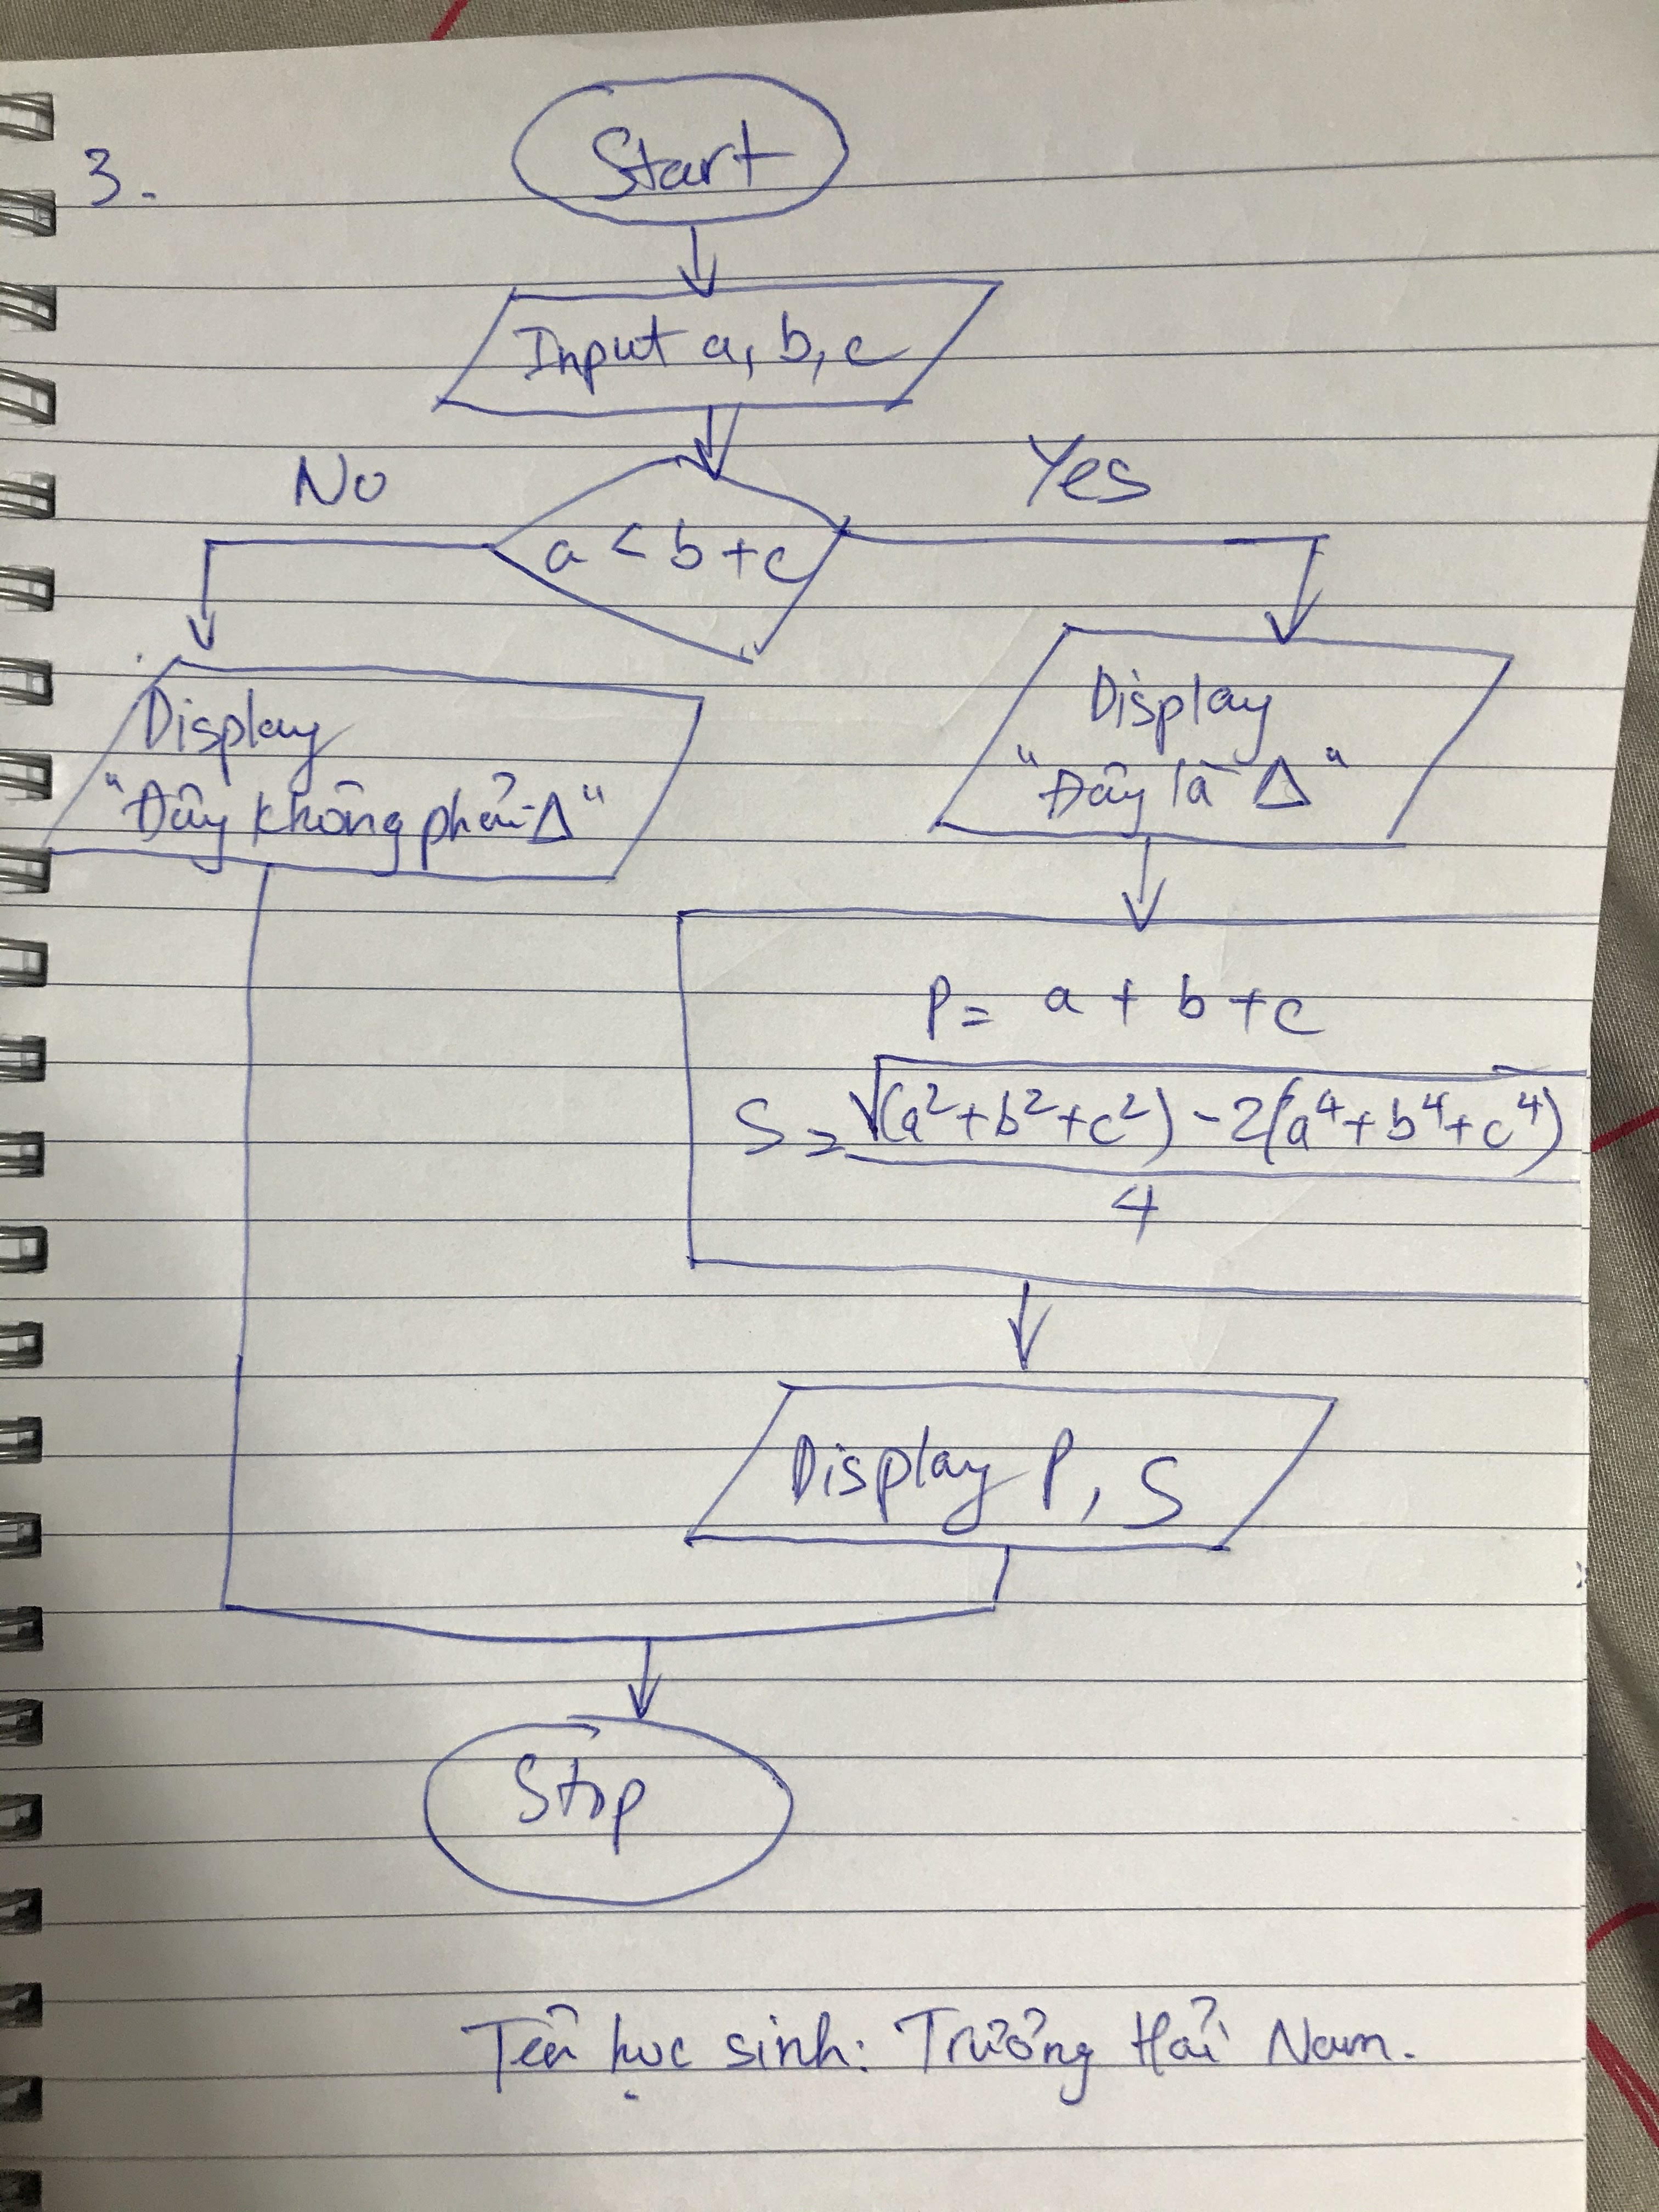 3.
Start
Input a, b, c
No
Yes
a < b + c
Display
"Đây không phải Δ"
Display
"Đây là Δ"
P = a + b + c
S = √(a²+b²+c²) - 2(a⁴+b⁴+c⁴)
4
Display P, S
Stop
Tên học sinh: Trưởng Hải Nam.